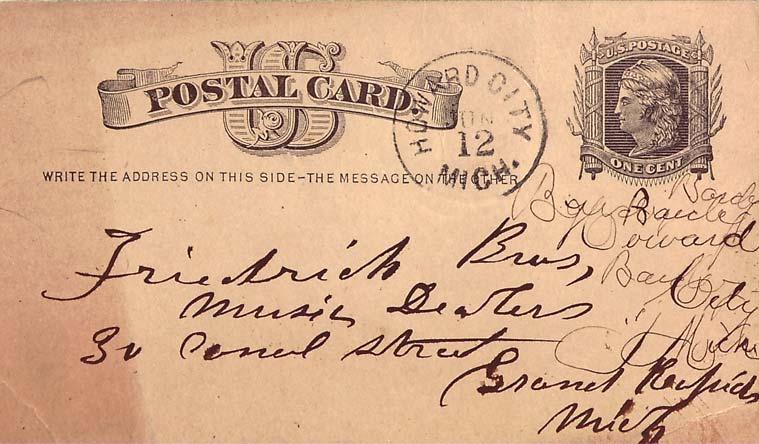 US
POSTAL CARD.
U.S. POSTAGE
ONE CENT
HOWARD CITY
JUN
12
MICH.
WRITE THE ADDRESS ON THIS SIDE-THE MESSAGE ON THE OTHER
Friedrich Bros,
Music Dealers
30 Canal street
Grand Rapids
Mich
Howard
City
Mich